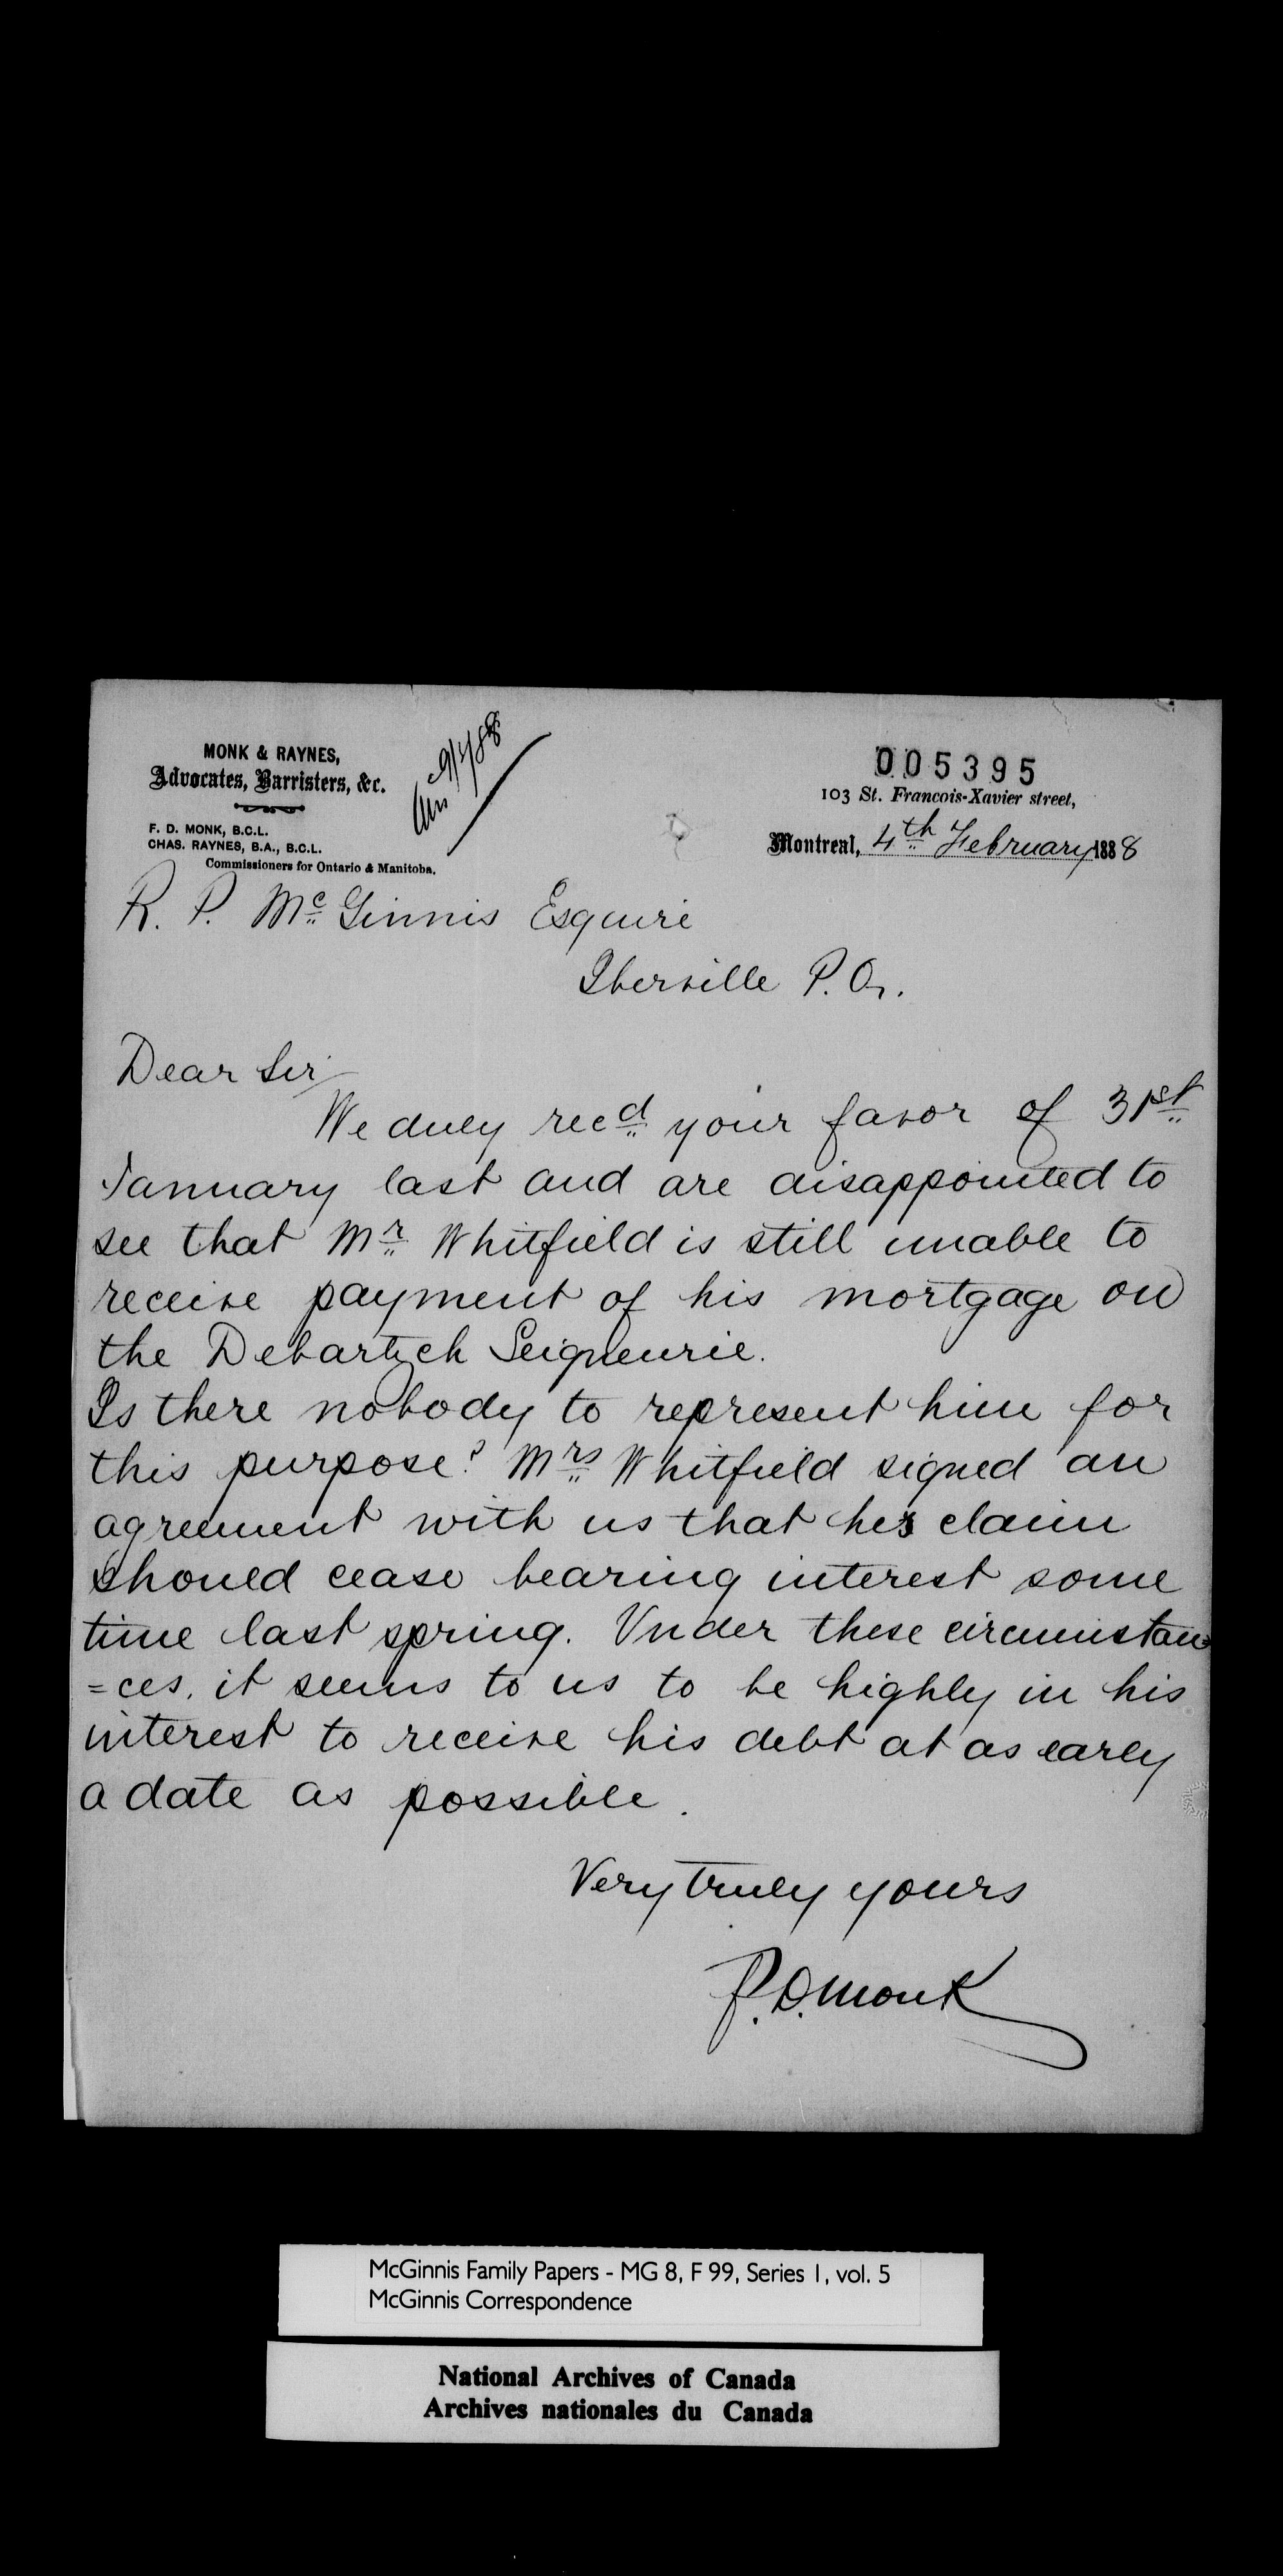 MONK & RAYNES,
Advocates, Barristers, &c.
F. D. MONK, B.C.L.
CHAS. RAYNES, B.A., B.C.L.
Commissioners for Ontario & Manitoba.
005395
103 St. Francois-Xavier street,
Montreal, 4th February 1888
R. P. Mc Ginnis Esquire
Iberville P.Q.
Dear Sir
We duly recd your favor of 31st
January last and are disappointed to
see that Mr Whitfield is still unable to
receive payment of his mortgage on
the Debartzch Seigneurie.
Is there nobody to represent him for
this purpose? Mrs Whitfield signed an
agreement with us that his claim
should cease bearing interest some
time last spring. Under these circumstan
=ces, it seems to us to be highly in his
interest to receive his debt at as early
a date as possible.
Very truly yours
F. D. Monk
McGinnis Family Papers - MG 8, F 99, Series 1, vol. 5
McGinnis Correspondence
National Archives of Canada
Archives nationales du Canada